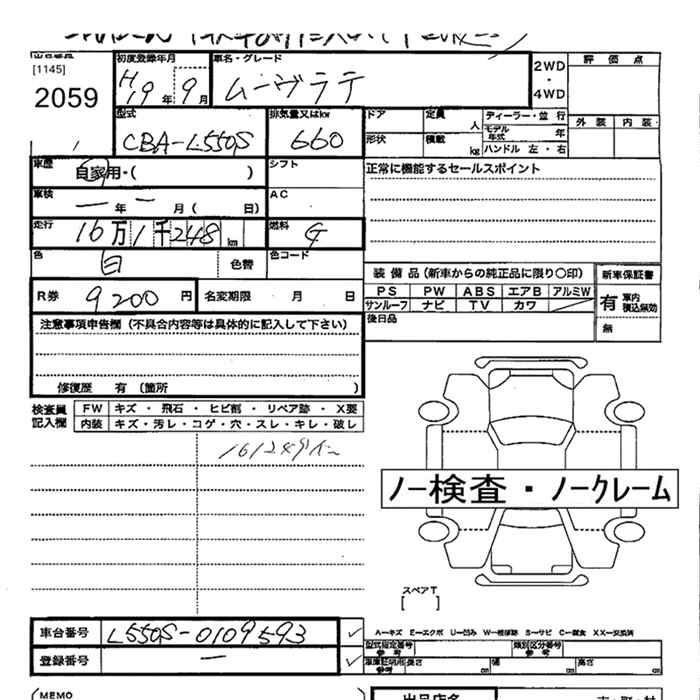 [1145]
2059
初度登録年月
H19年9月
車名・グレード
ムーヴラテ
2WD
・
4WD
評価点
外装 内装
型式
CBA-L550S
排気量又はkw
660
ドア
定員 人
形状
積載 kg
ディーラー・並行
モデル年式 年
ハンドル 左・右
車歴
自家用・( )
シフト
正常に機能するセールスポイント
車検
ー年ー月( 日)
AC
走行
16万1千248km
燃料
G
色
白
色替
色コード
R券 9200円
名変期限 月 日
装備品(新車からの純正品に限り○印)
新車保証書
PS PW ABS エアB アルミW
サンルーフ ナビ TV カワ
有 車内積込無効
無
後日品
注意事項申告欄(不具合内容等は具体的に記入して下さい)
修復歴 有(箇所 )
検査員記入欄
FW キズ・飛石・ヒビ割・リペア跡・X要
内装 キズ・汚レ・コゲ・穴・スレ・キレ・破レ
ノー検査・ノークレーム
スペアT
[ ]
車台番号 L550S-0109593
登録番号 ー
A—キズ E—エクボ U—凹み W—補修跡 S—サビ C—腐食 XX—交換済
型式指定番号 参考
類別区分番号 参考
車庫証明用 参考
長さ cm 幅 cm 高さ cm
(MEMO
出品店名
市・町・村